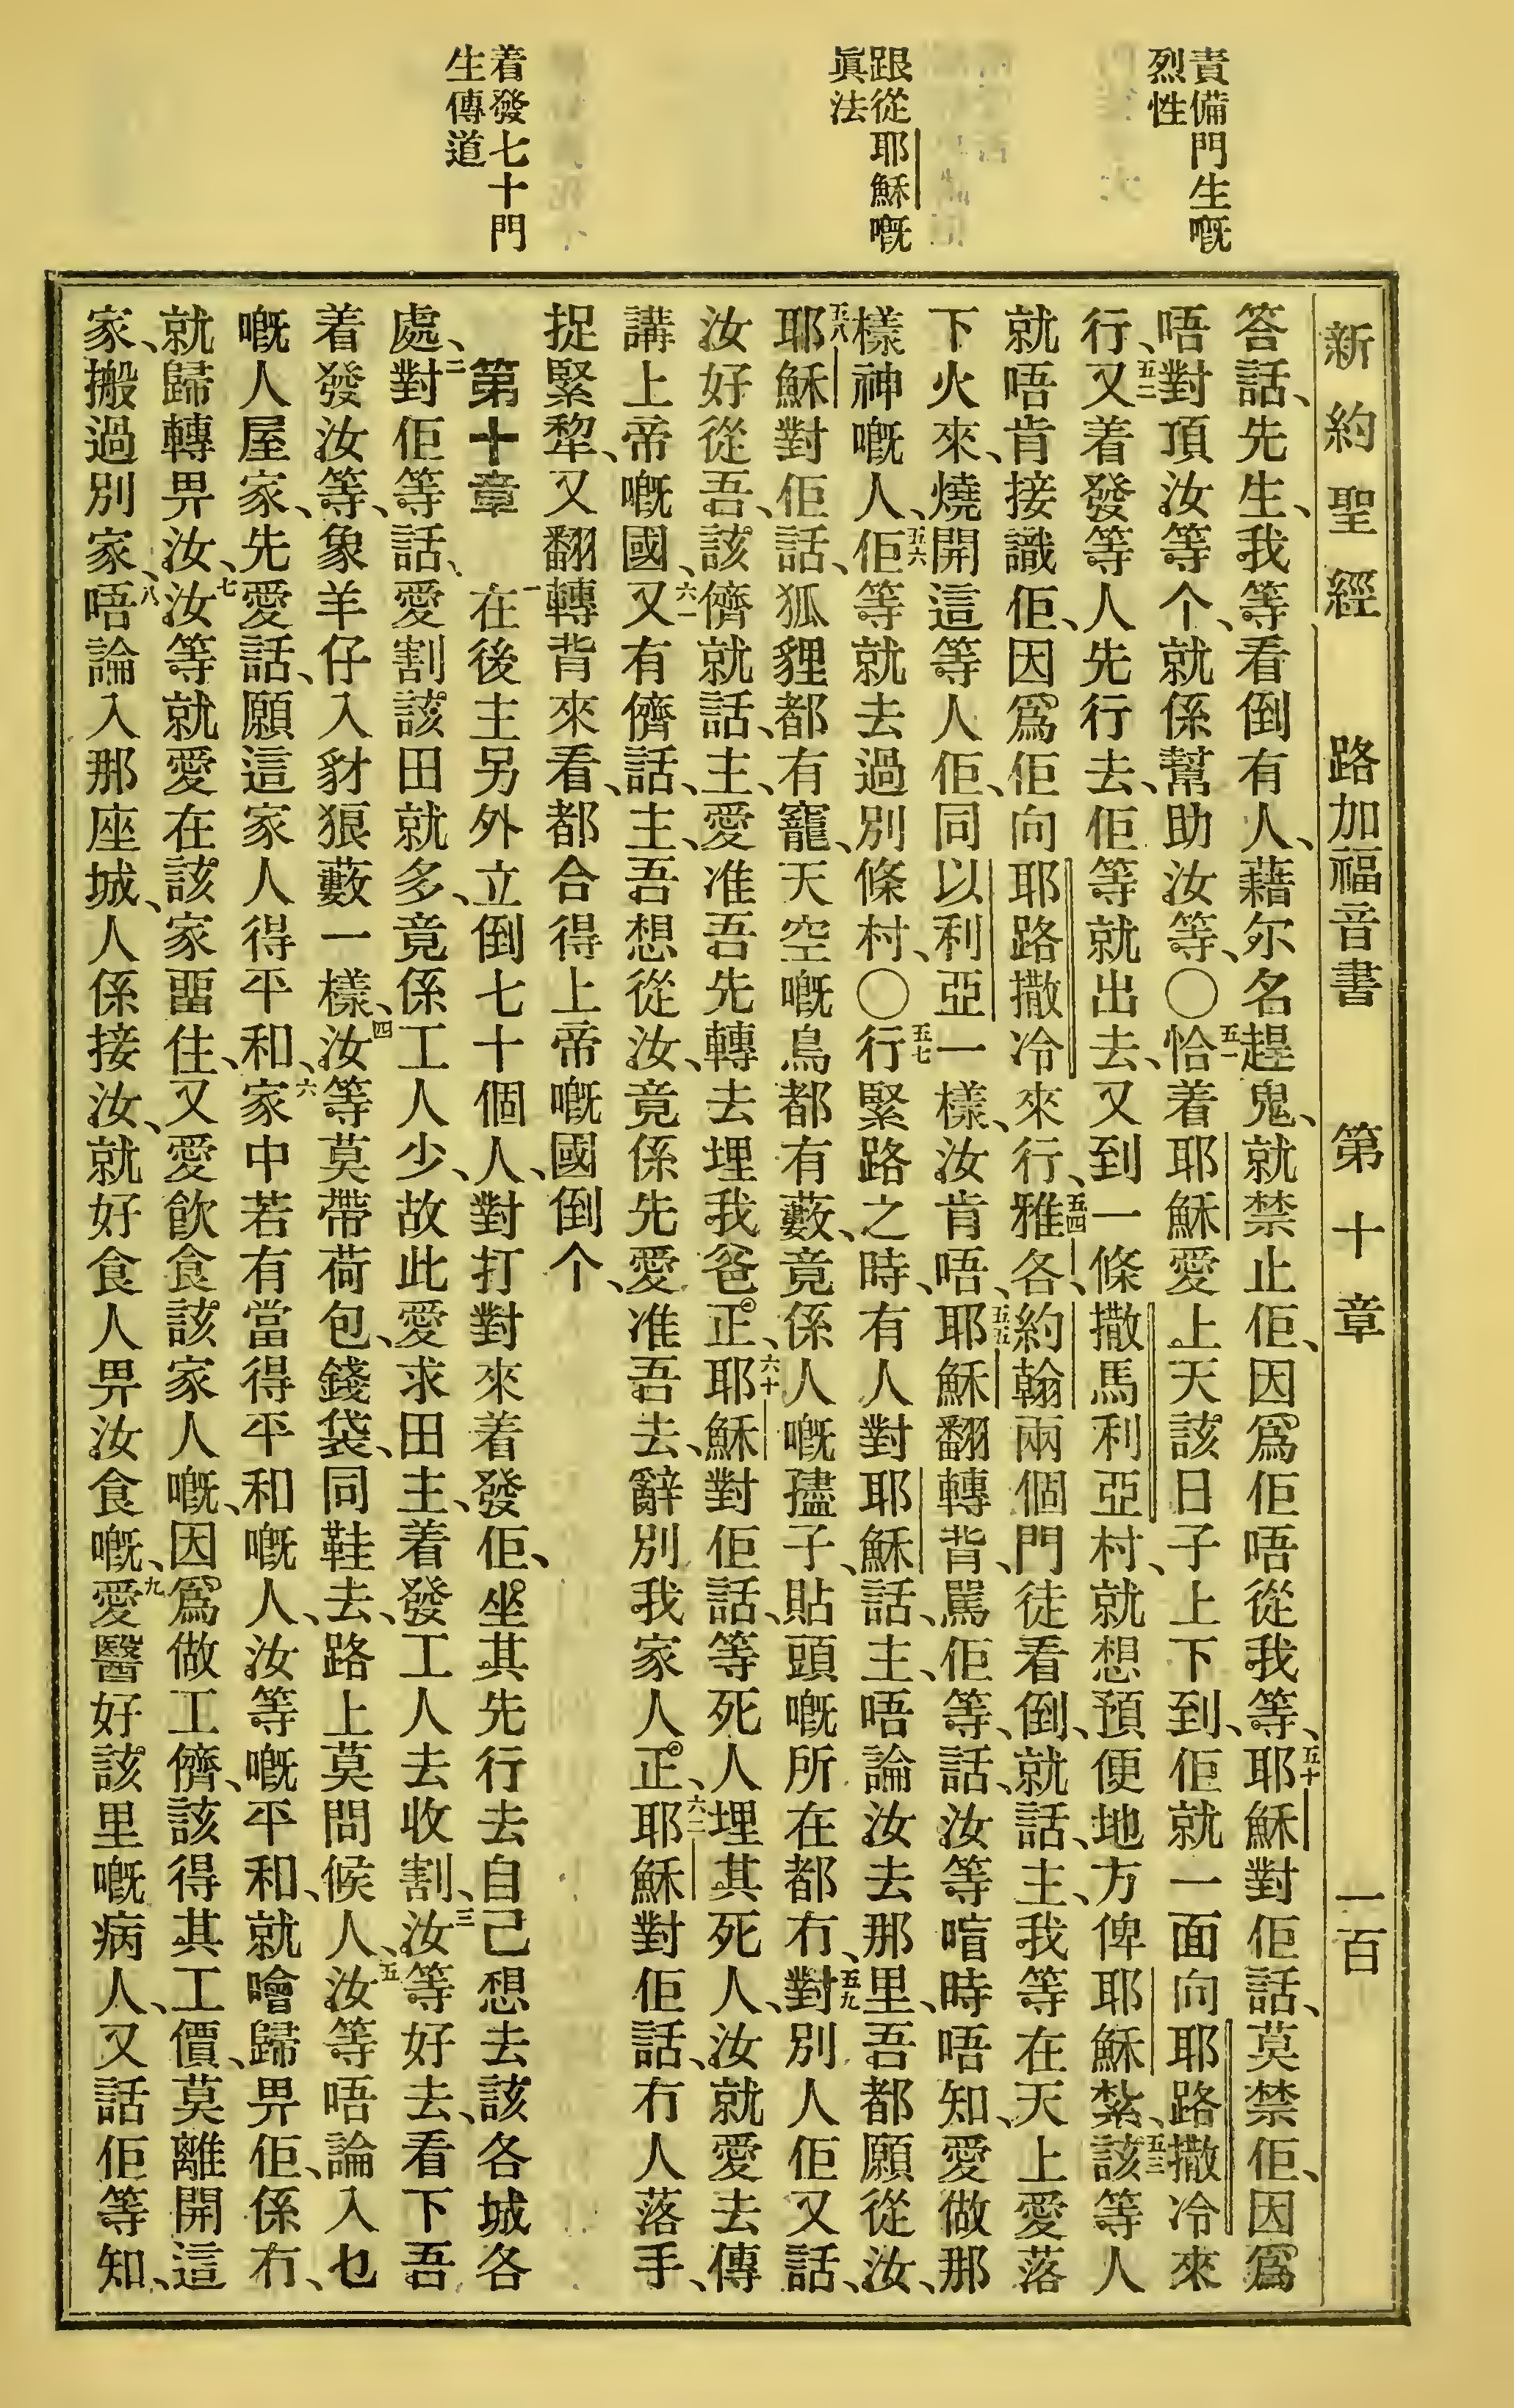 新約聖經 路加福音書 第十章 一百
責備門生嘅
烈性
跟從耶穌嘅
眞法
着發七十門
生傳道
答話、先生、我等看倒有人、藉尔名趕鬼、就禁止佢、因爲佢唔從我等、五十耶穌對佢話、莫禁佢、因爲
唔對頂汝等个、就係幫助汝等、〇五一恰着耶穌愛上天該日子上下到、佢就一面向耶路撒冷來
行、五二又着發等人先行去、佢等就出去、又到一條撒馬利亞村、就想預便地方俾耶穌紮、五三該等人
就唔肯接識佢、因爲佢向耶路撒冷來行、五四雅各、約翰兩個門徒看倒、就話、主、我等在天上愛落
下火來、燒開這等人佢、同以利亞一樣、汝肯唔、五五耶穌翻轉背、罵佢等、話、汝等喑時唔知、愛做那
樣神嘅人、五六佢等就去過別條村、〇五七行緊路之時、有人對耶穌話、主、唔論汝去那里、吾都願從汝、
五八耶穌對佢話、狐貍都有竉、天空嘅鳥都有藪、竟係人嘅孻子、貼頭嘅所在都冇、五九對別人佢又話、
汝好從吾、該儕就話、主、愛准吾先轉去埋我爸正、六十耶穌對佢話、等死人埋其死人、汝就愛去傳
講上帝嘅國、六一又有儕話、主、吾想從汝、竟係先愛准吾去、辭別我家人正、六二耶穌對佢話、冇人落手、
捉緊犂、又翻轉背來看、都合得上帝嘅國倒个、
第十章 一在後主另外立倒七十個人、對打對來着發佢、坐其先行去自己想去該各城各
處、二對佢等話、愛割該田就多、竟係工人少、故此愛求田主、着發工人去收割、三汝等好去、看下吾
着發汝等、象羊仔入豺狼藪一樣、四汝等莫帶荷包、錢袋、同鞋去、路上莫問候人、五汝等唔論入乜
嘅人屋家、先愛話、願這家人得平和、六家中若有當得平和嘅人、汝等嘅平和、就噲歸畀佢、係冇、
就歸轉畀汝、七汝等就愛在該家畱住、又愛飮食該家人嘅、因爲做工儕、該得其工價、莫離開這
家、搬過別家、八唔論入那座城、人係接汝、就好食人畀汝食嘅、九愛醫好該里嘅病人、又話佢等知、